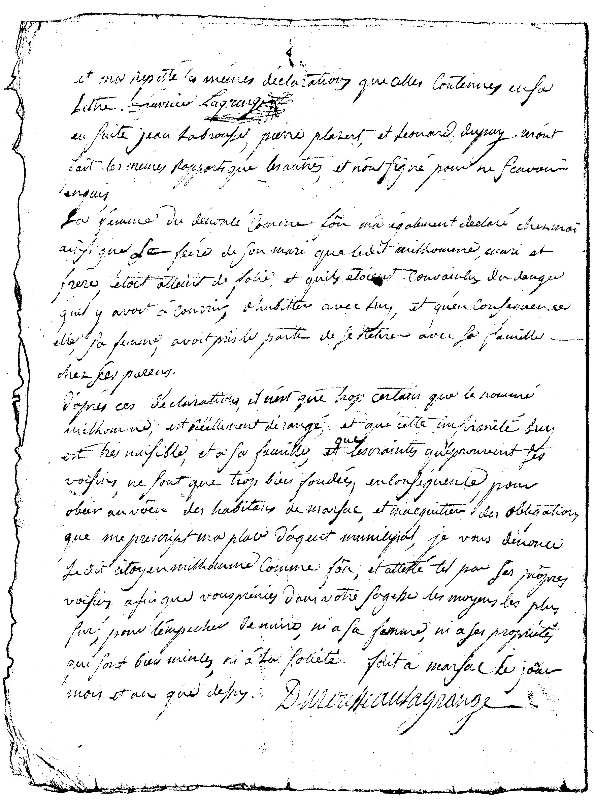 et ma répétté les mêmes déclarations que celles Contenues en sa
Lettre. Lagrange
en suite jean Labrousse, pierre plazert, et Leonard dupuy mont
fait les memes Rapports que les autres, et nont signé pour ne scavoir
enquis
La femme du denoncé Comme fou ma également declaré chez moi
ainsi que Le frère de son mari que ledit milhomme, mari et
frere étoit atteint de folie, et quils etoient Convaincus du danger
quil y avoit à Courrir, d'habitter avec luy, et quen Consequence
elle sa femme, avoit pris le partie de se Retirer avec sa famille
chez ses parens.
d'après ces declarations, il n'est que trop certain que le nommé
milhomme, est réellement derangé, et que cette infirmité luy
est très nuisible, et a sa famille, et que les craintes qu'éprouvent ses
voisins, ne sont que trop bien fondées, en Conséquence pour
obéir au vœu des habitans de marsac, et m'acquitter des obligations
que me prescript ma place d'agent municipal, je vous dénonce
Le dit citoyen milhomme Comme fou, et attesté tel par ses propres
voisins afin que vous preniés dans votre sagesse les moyens les plus
sur, pour l'empecher de nuire, ni a sa femme, ni a ses propriétés,
qui sont bien minces, ni à la société. fait a marsac le jour
mois et an que dessus. Durousseau Lagrange